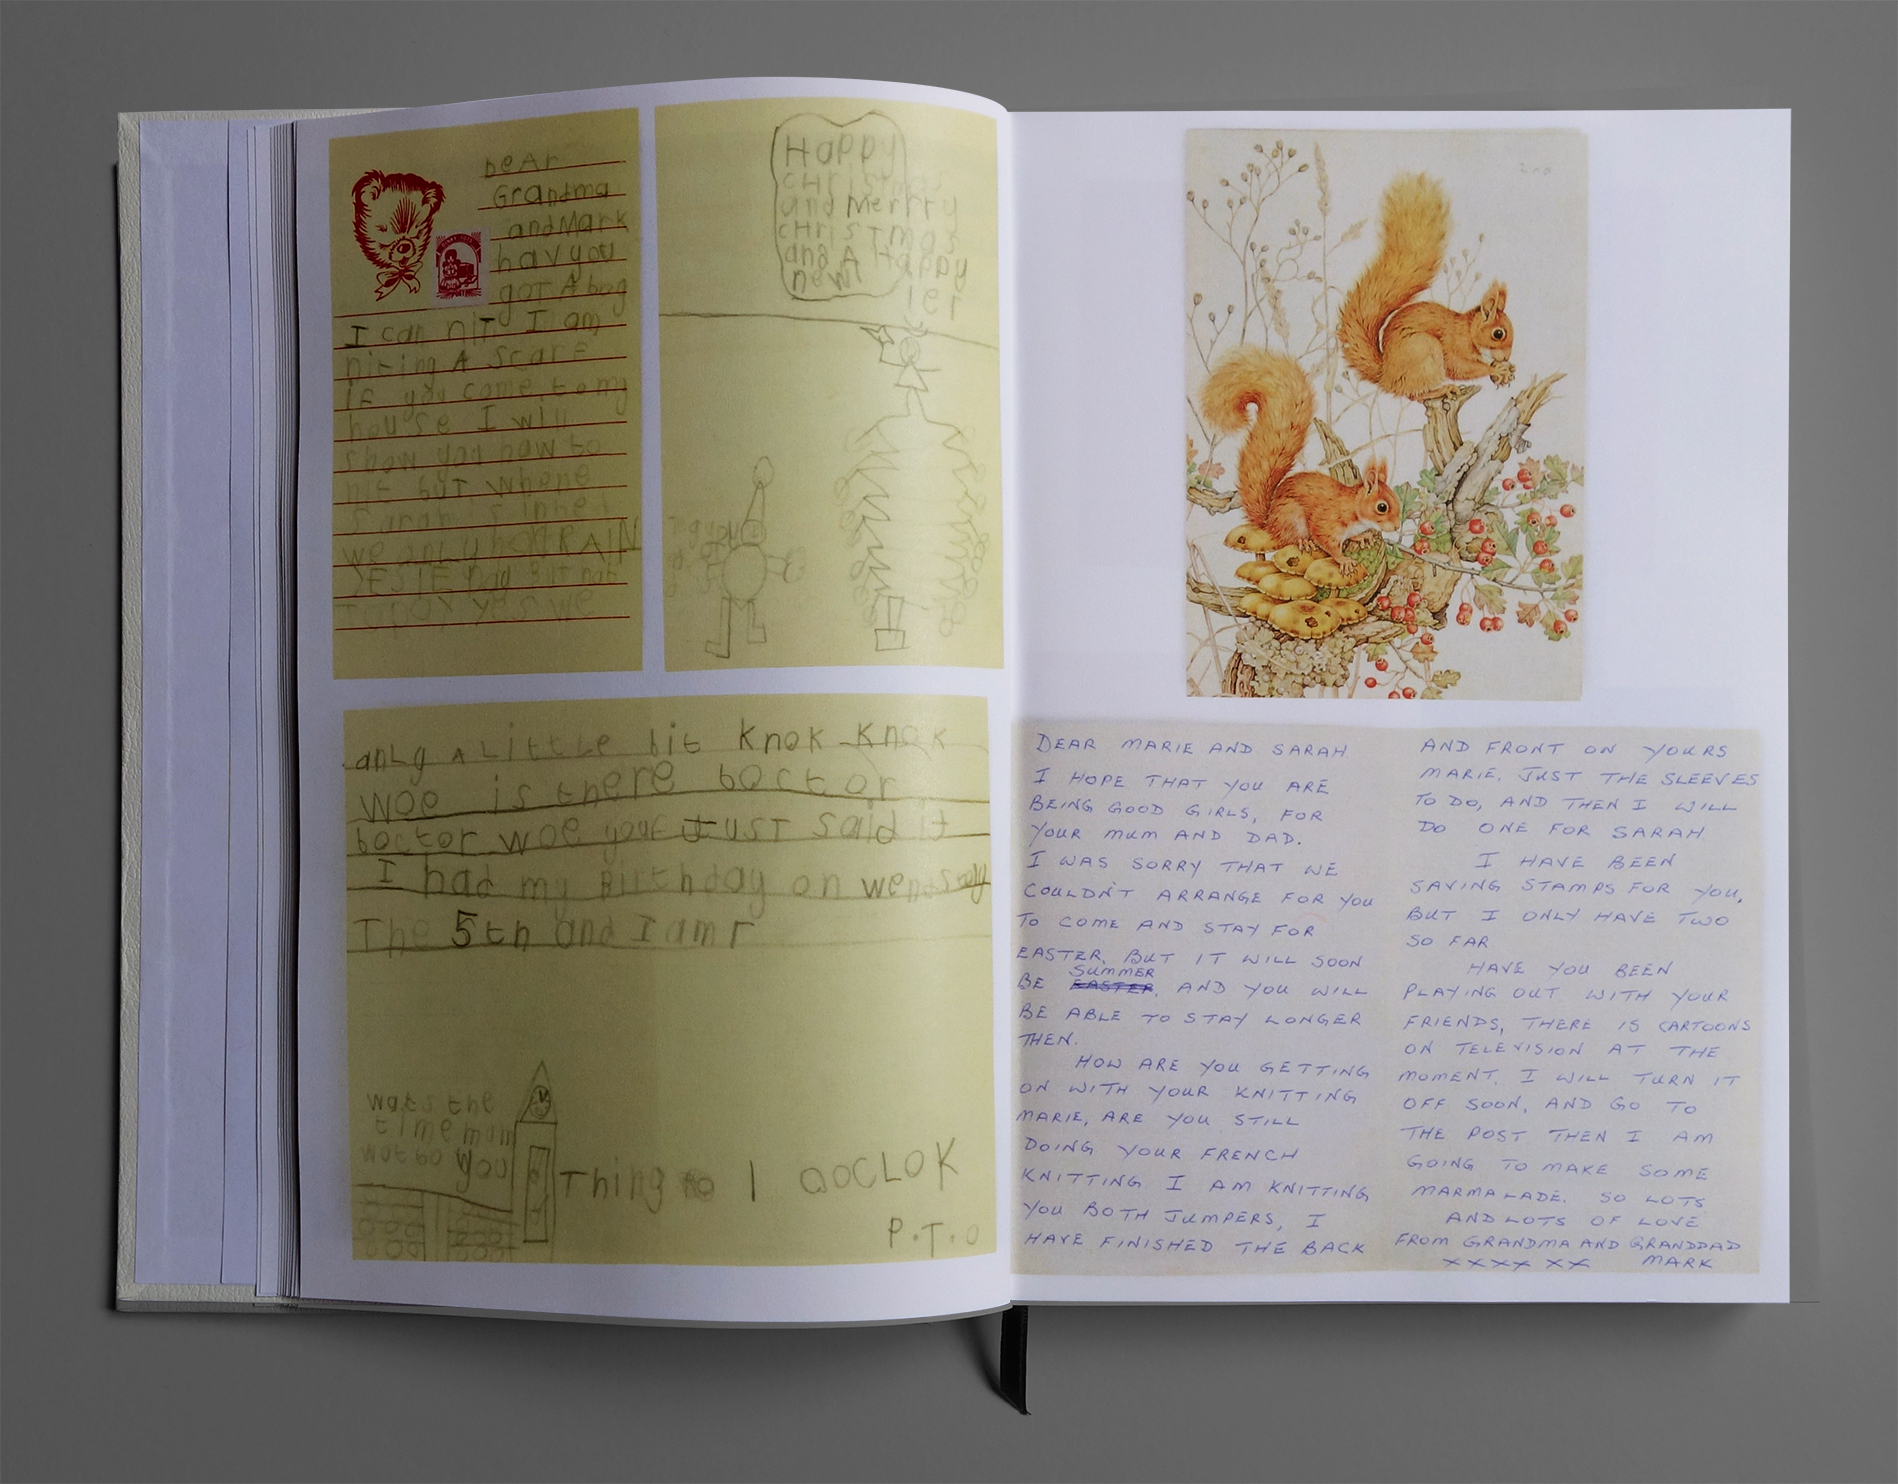 DeAr
Grandma
and Mark
hav you
goT A bog
I can niT I am
niting A scarf
if you come to my
house I will
show you how to
nit but whene
Sarah is inbed
we only had RAIN
YESTEDay But not
Today yes we
Happy
cHristmas
and Merrry
cHrisTmas
and A Happy
new
ier
anly A Little bit knok knok
woe is there Doctor
Doctor woe youe Just said it
I had my Birthday on wendsday
The 5th and I am
wats the
time mum
wat do you
Thing to 1 aoCLOK
P.T.O
DEAR MARIE AND SARAH
I HOPE THAT YOU ARE
BEING GOOD GIRLS, FOR
YOUR MUM AND DAD.
I WAS SORRY THAT WE
COULDN'T ARRANGE FOR YOU
TO COME AND STAY FOR
EASTER. BUT IT WILL SOON
SUMMER
BE EASTER. AND YOU WILL
BE ABLE TO STAY LONGER
THEN.
HOW ARE YOU GETTING
ON WITH YOUR KNITTING
MARIE, ARE YOU STILL
DOING YOUR FRENCH
KNITTING I AM KNITTING
YOU BOTH JUMPERS, I
HAVE FINISHED THE BACK
AND FRONT ON YOURS
MARIE. JUST THE SLEEVES
TO DO, AND THEN I WILL
DO ONE FOR SARAH
I HAVE BEEN
SAVING STAMPS FOR YOU,
BUT I ONLY HAVE TWO
SO FAR
HAVE YOU BEEN
PLAYING OUT WITH YOUR
FRIENDS, THERE IS CARTOONS
ON TELEVISION AT THE
MOMENT. I WILL TURN IT
OFF SOON, AND GO TO
THE POST THEN I AM
GOING TO MAKE SOME
MARMALADE. SO LOTS
AND LOTS OF LOVE
FROM GRANDMA AND GRANDDAD
XXXX XX MARK